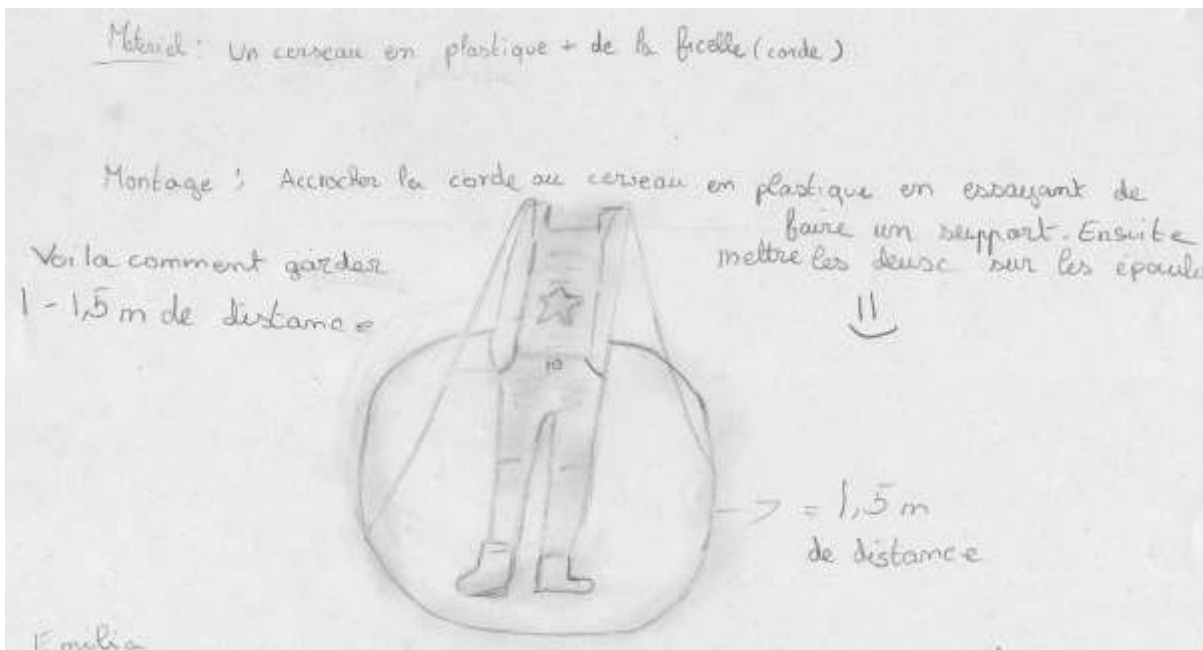 Matériel : Un cerseau en plastique + de la ficelle (corde)
Montage : Accrocher la corde au cerseau en plastique en essayant de
faire un support. Ensuite
mettre les deusc sur les épaul
Voila comment garder
1 - 1,5 m de distance
= 1,5 m
de distance
Emilia